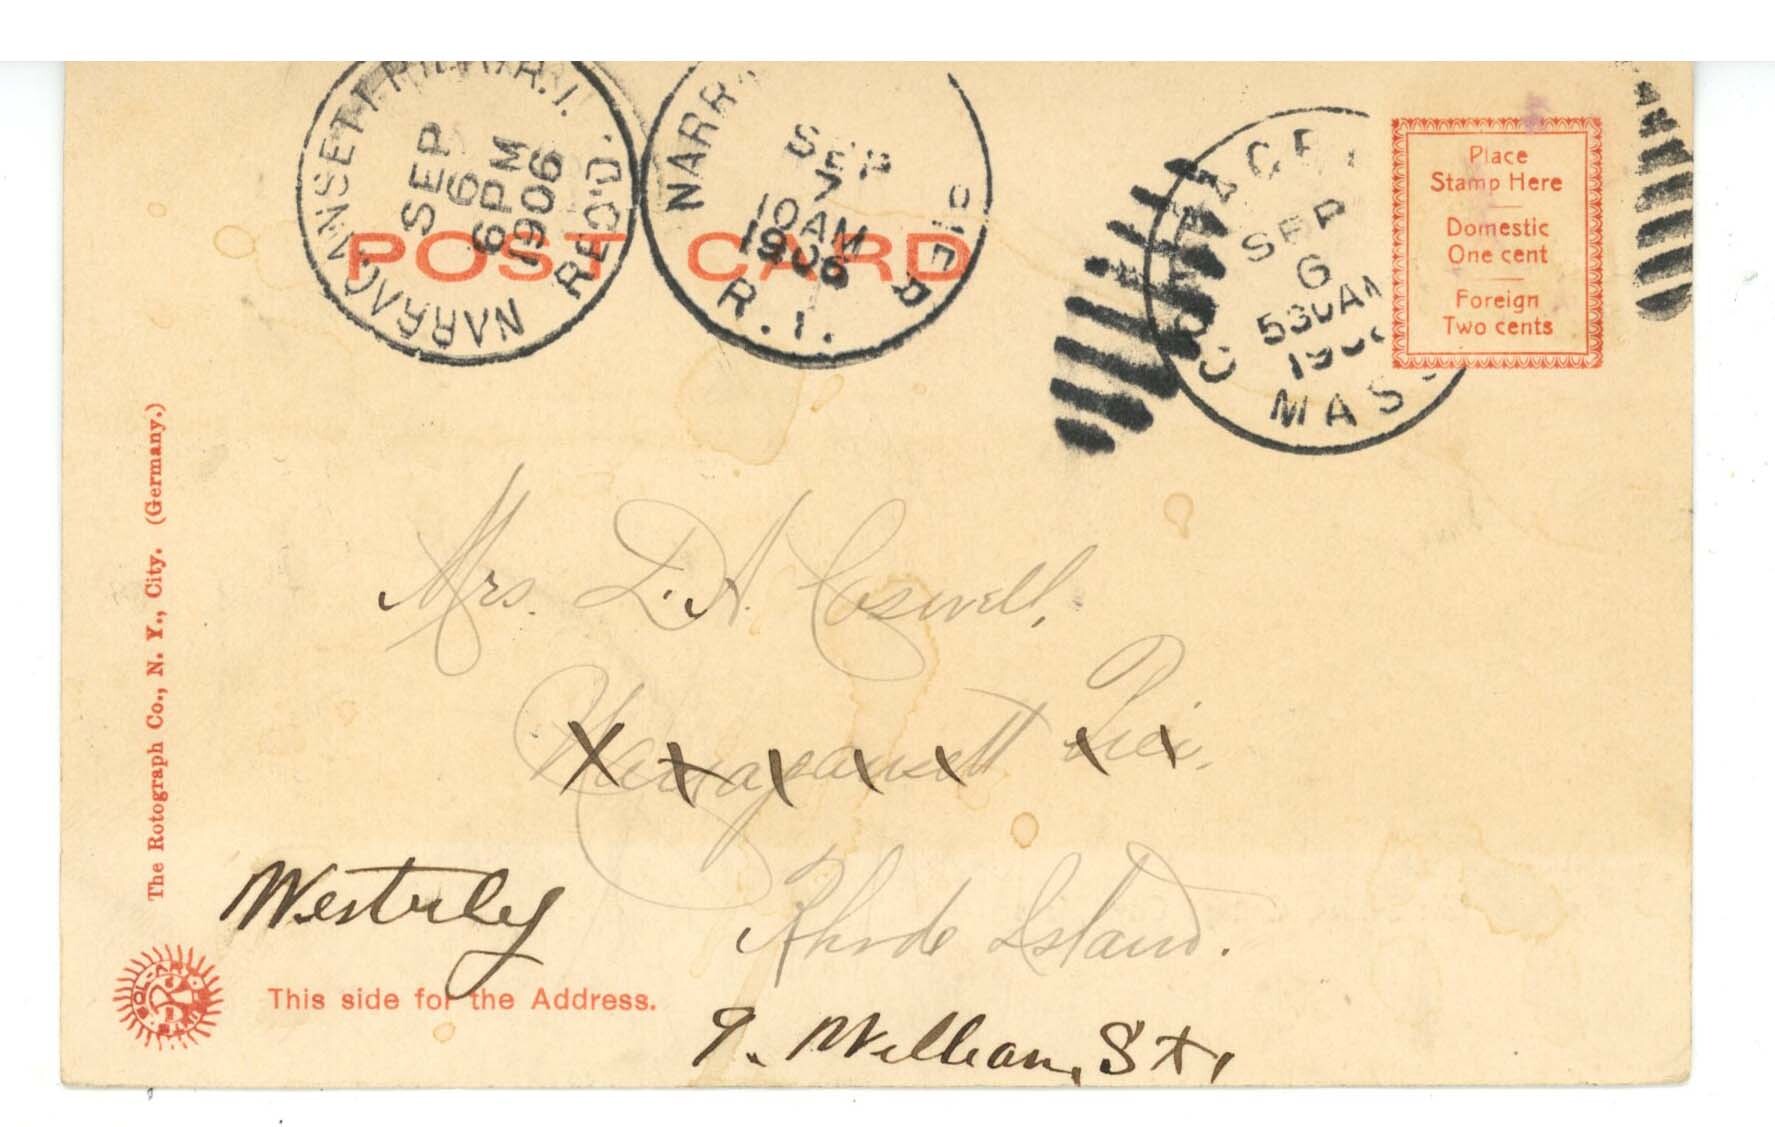 NARRAGANSETT PIER, R.I. REC'D.
SEP
6
6 PM
1906
NARR PIER
SEP
7
10 AM
1906
R.I.
SEP
6
530 AM
MASS
POST CARD
Place
Stamp Here
Domestic
One cent
Foreign
Two cents
The Rotograph Co., N. Y., City. (Germany.)
Mrs. D. A. Coswell,
Narragansett Pier,
Rhode Island.
Westerly
This side for the Address.
9. William, St,
SOL-ART